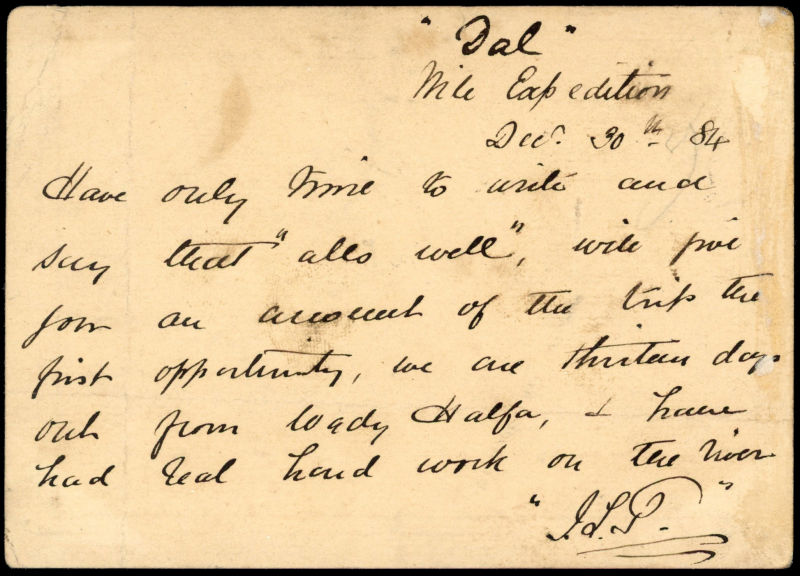 "Dal"
Nile Expedition
Decr. 30th 84
Have only time to write and
say that "alls well", will give
you an account of the trip the
first opportunity, we are thirteen days
out from Wady Halfa, & have
had real hard work on the river
"J.L.P."